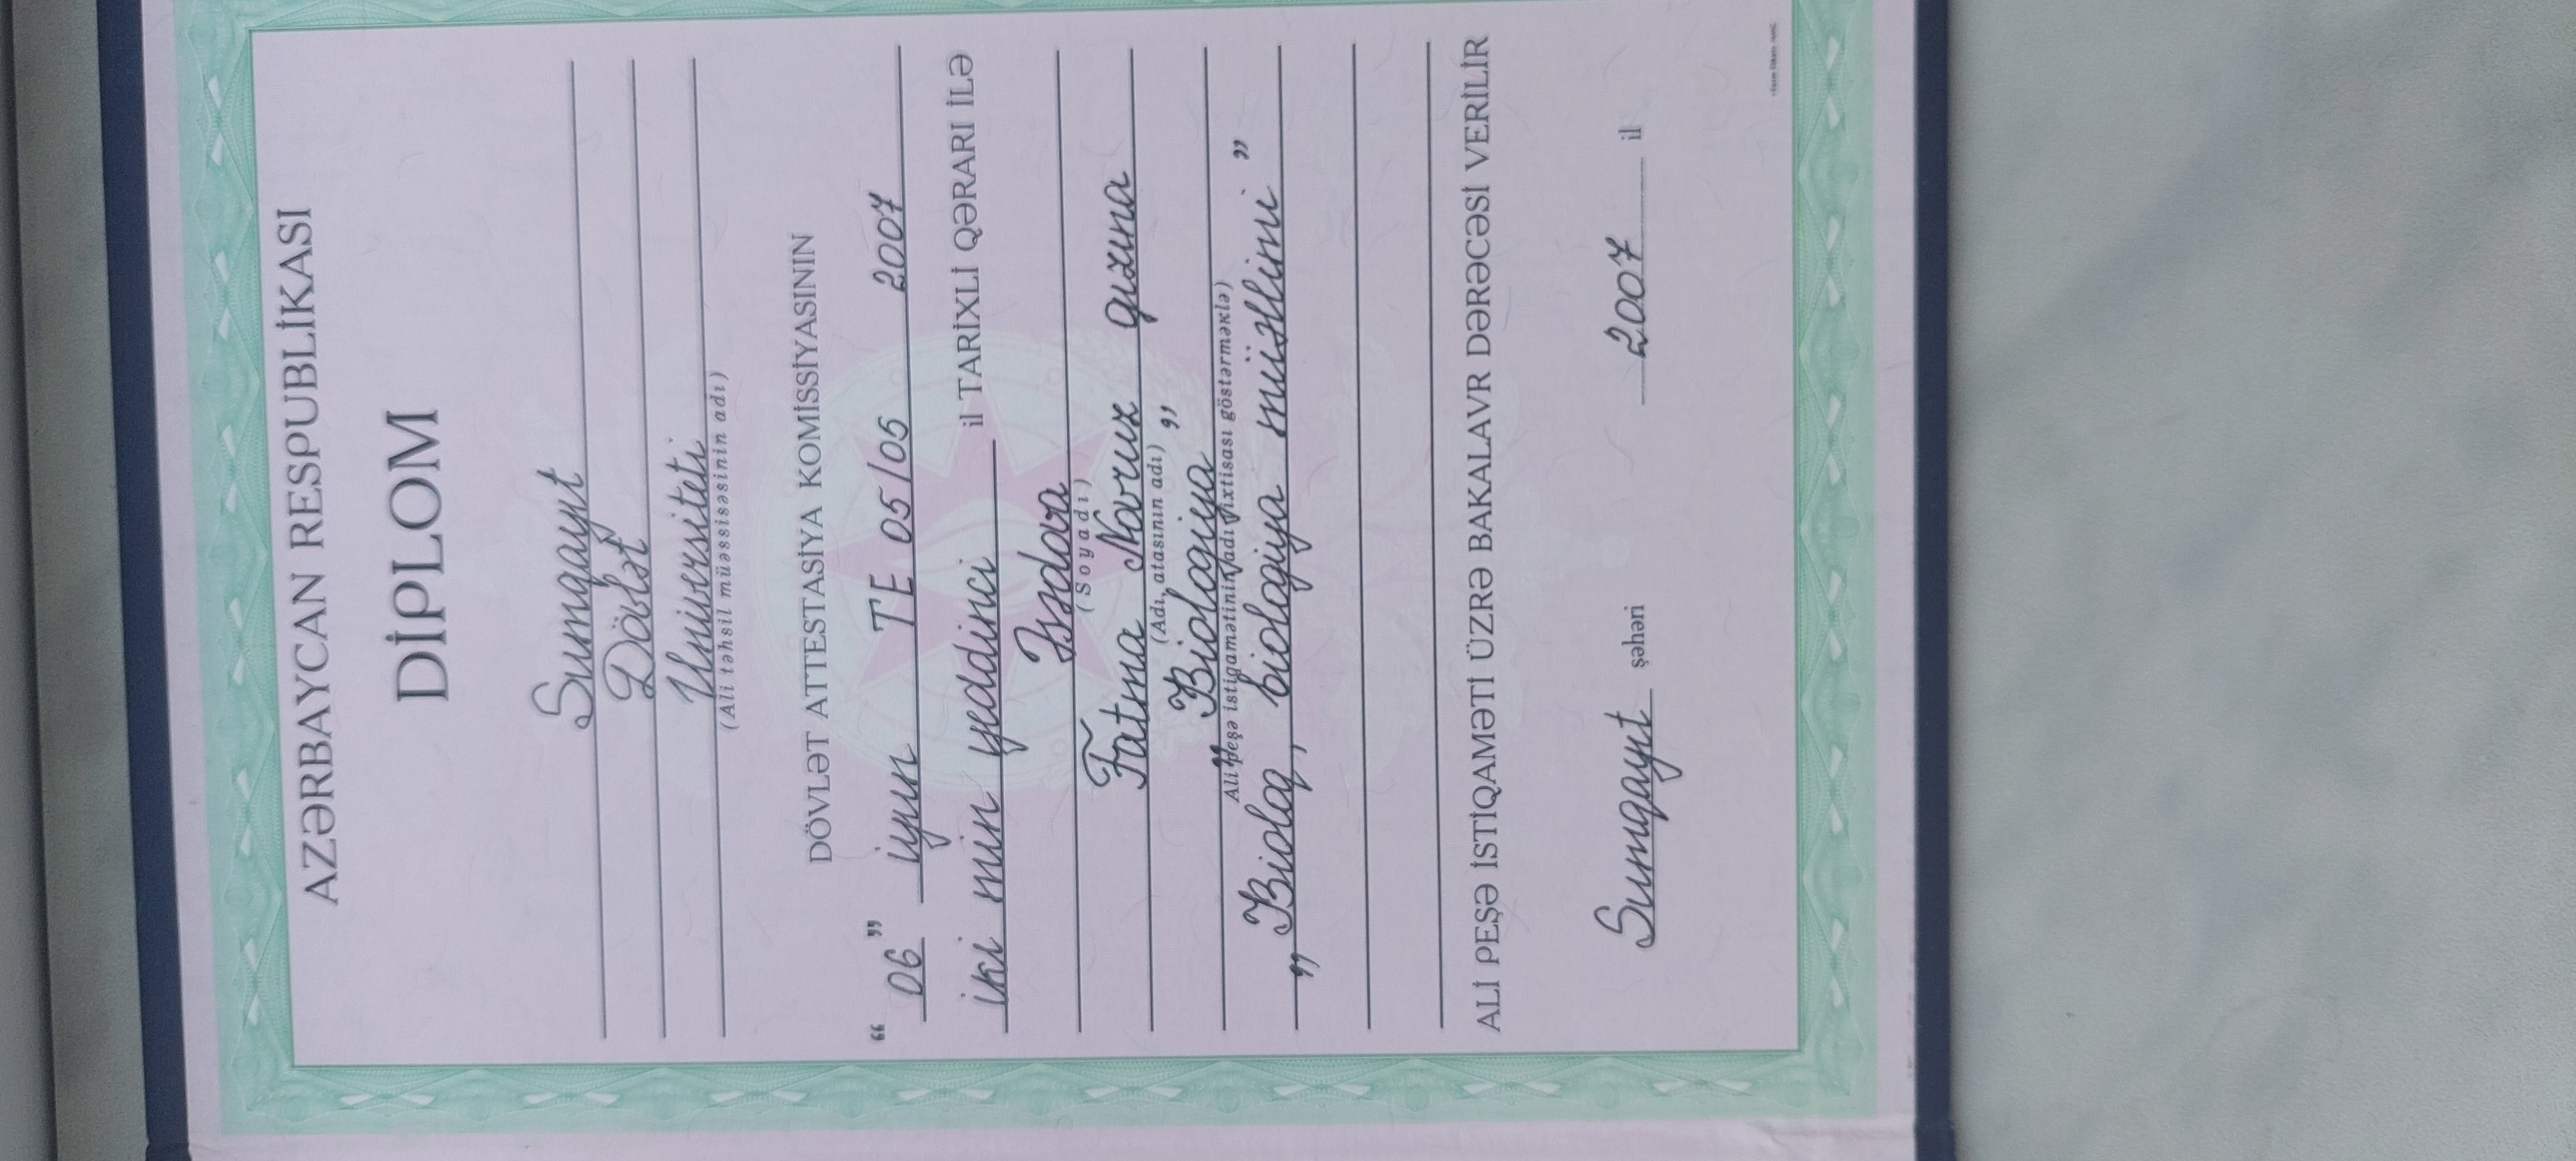 AZƏRBAYCAN RESPUBLİKASI
DİPLOM
Sumqayıt
Dövlət
Universiteti
(Ali təhsil müəssisəsinin adı)
DÖVLƏT ATTESTASİYA KOMİSSİYASININ
“ 06 ” iyun TE 05/05 2007
iki min yeddinci il TARİXLİ QƏRARI İLƏ
(Soyadı)
Fatma Novruz qızına
(Adı, atasının adı)
„Biologiya”
Ali peşə istiqamətinin adı (ixtisası göstərməklə)
„Bioloq, biologiya müəllimi”
ALİ PEŞƏ İSTİQAMƏTİ ÜZRƏ BAKALAVR DƏRƏCƏSİ VERİLİR
Sumqayıt şəhəri 2007 il